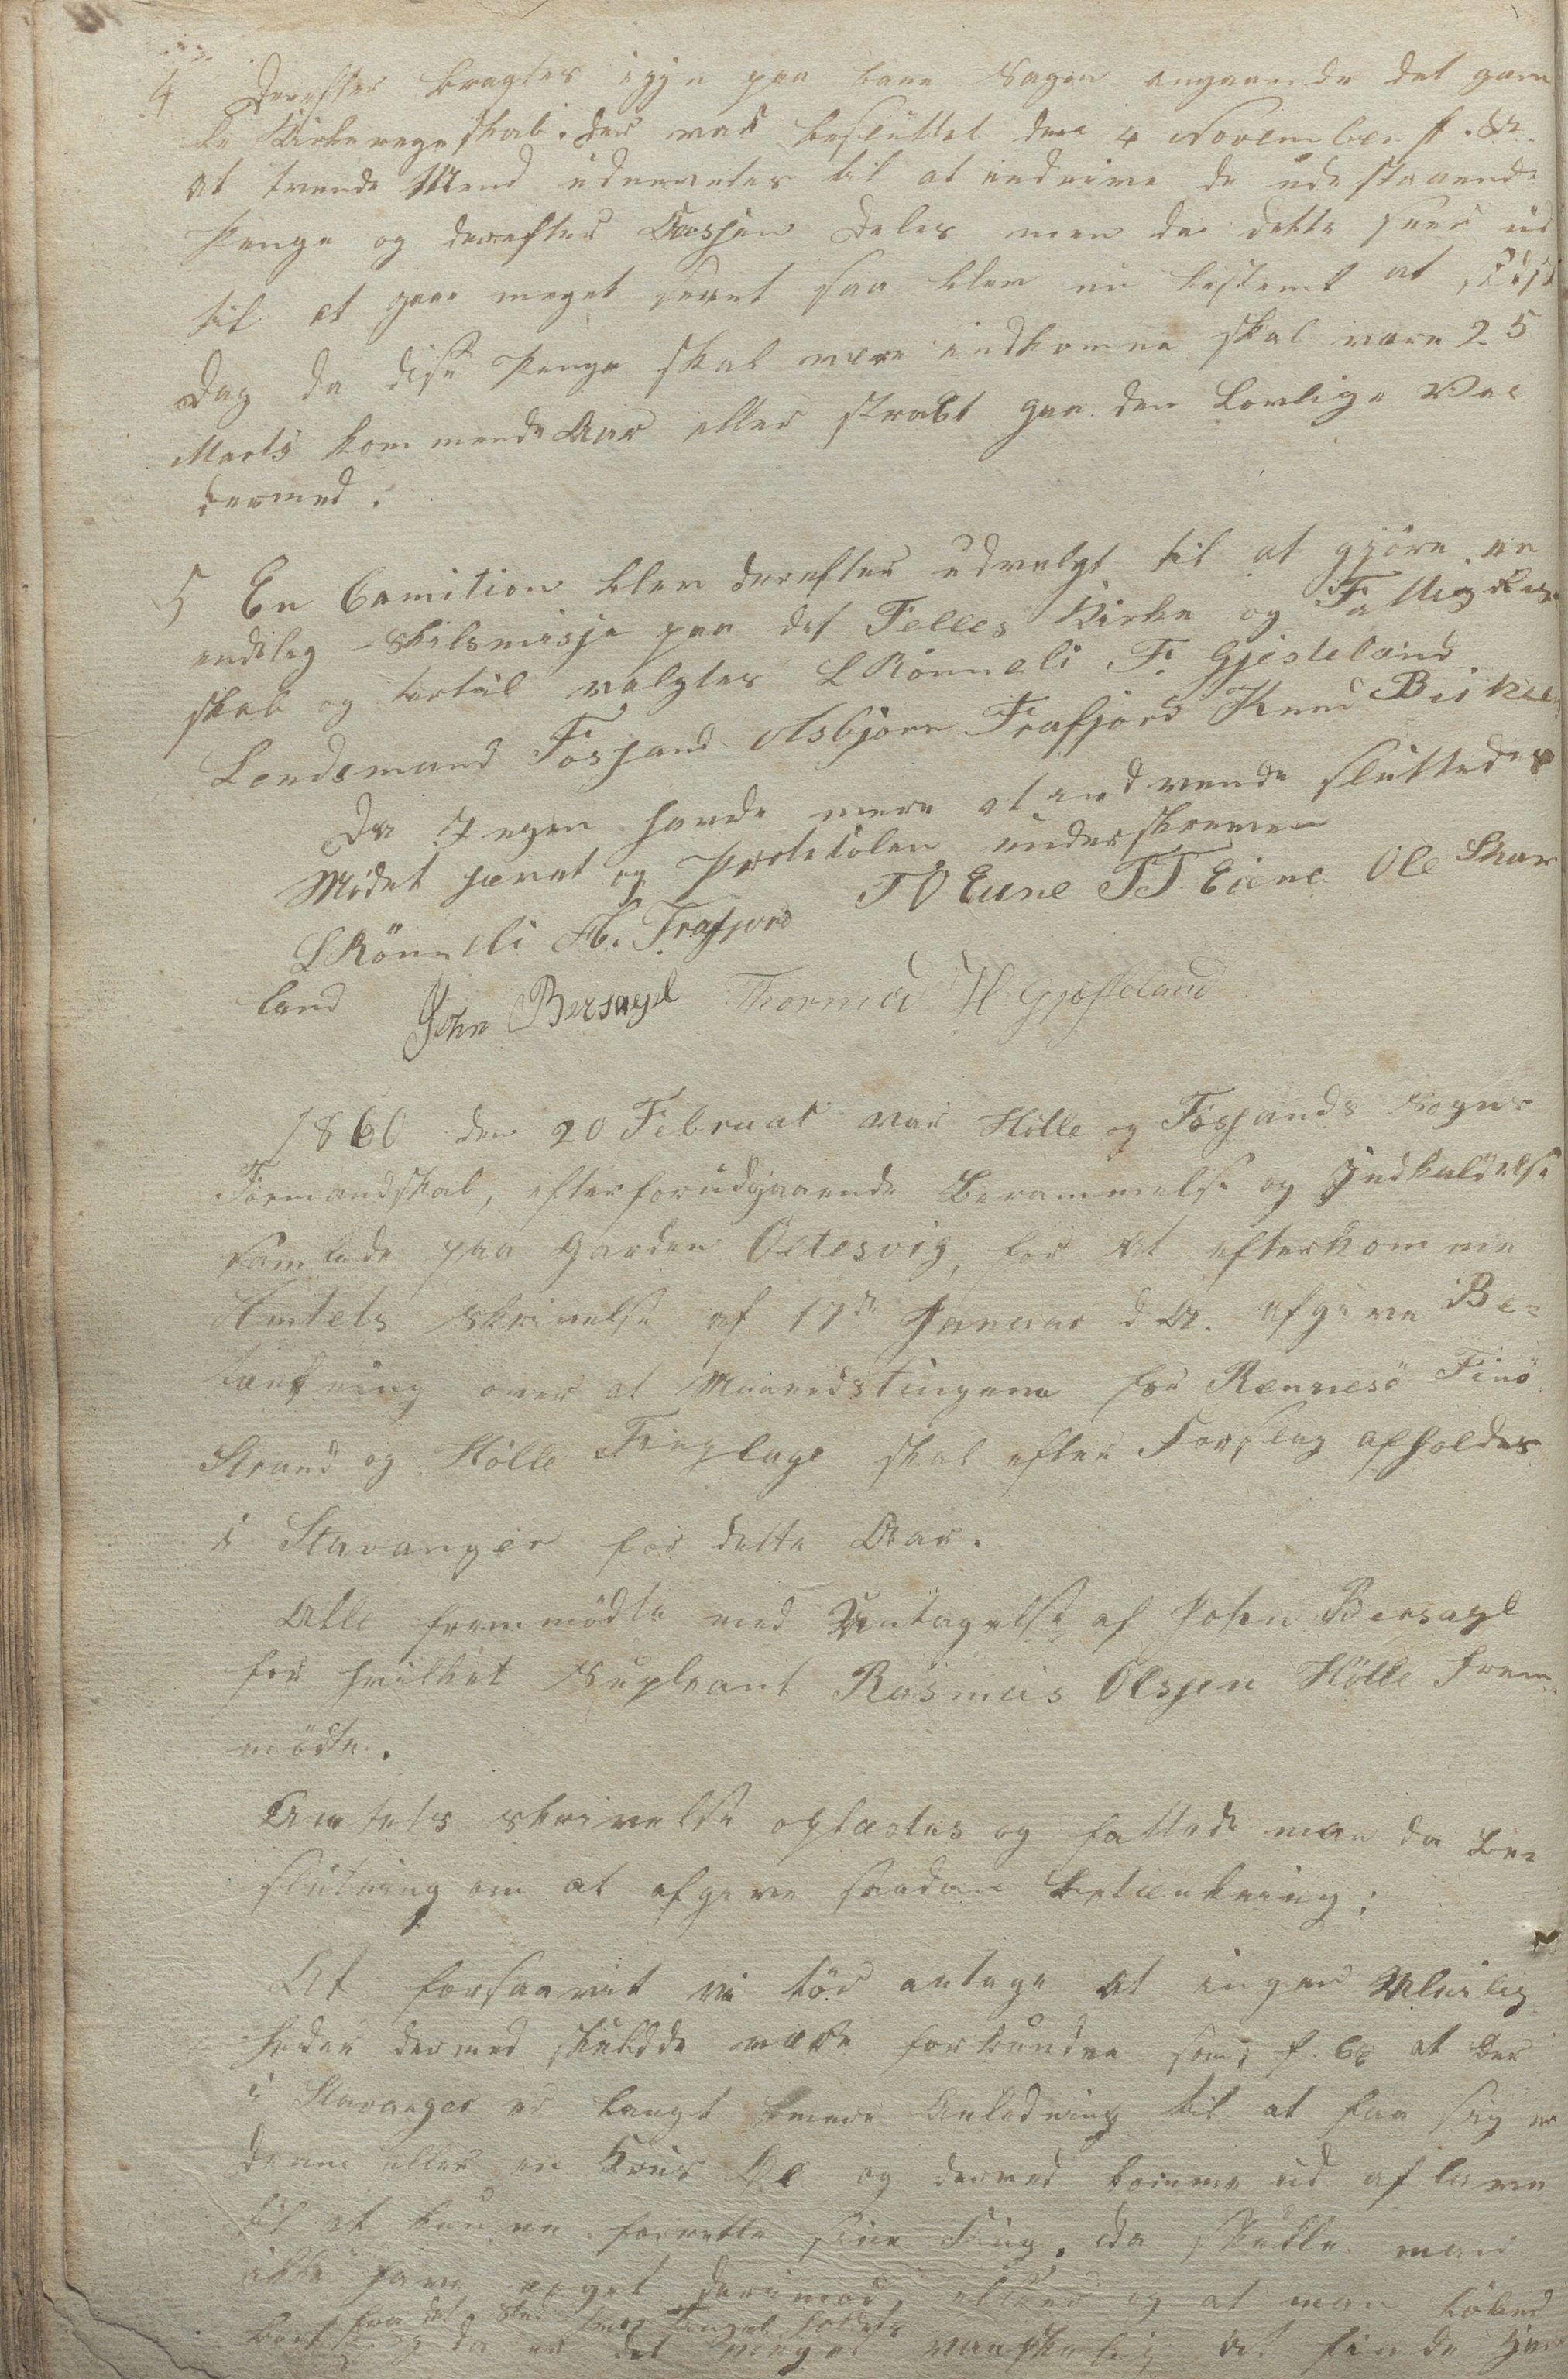 4 Derefter bragtes igjen paa bane Sagen angaaende det gam
le Kirkeregnskab. Der var besluttet den 4 November f. A.
at trende Mend udnevntes til at inddrive de udestaaende
Penge og derefter Kasjen deles men da dette seer ud
til at gaae meget seent saa blev nu bestemt at sidste
Dag da disse Penge skal vere indkomne skal være 25
Marts kommende Aar eller strakt gaa den Lovlige Vei
dermed.
5 En Comition blev derefter udvalgt til at gjöre en
endelig Skilsmisje paa det Felles Kirke og Fattig Regn
skab og hertil valgtes L Rönneli F. Gjesteland
Lendsmand Fosjand Asbjörn Frafjord Knud Birke
Da Ingen havde mere at andvende sluttedes
Mödet hævet og Protokolen underskreven
L Rönneli A. Frafjord T O Eune T T Eiene Ole Skar
land John Bersagel Thormod H Gjesteland
1860 den 20 Februar var Hölle og Fosjands Sogns
Formandskab, efter forudgaaende Berammelse og Indkaldelse
samlede paa Garden Oltesvig, for at efterkomme
Amtets Skrivelse af 17de Januar d. A. afgive Be-
tænkning over at Maanedstingene for Rennesö Finö
Strand og Hölle Tinglage skal efter Forslag afholdes
i Stavanger for dette Aar.
Alle fremmödte med Untagelse af John Bersagel
for hvilket Supleant Rasmus Olsjen Hölle frem-
mödte.
Amtets Skrivelse oplæstes og fattede man da Be-
slutning om at afgive saadan Betænkning:
At forsaavit vi tör antage at ingen Uleilig
heder dermed skulde være forbunden som; f. Ex at der
i Stavanger er langt mere Anledning til at faa sig en
Dram eller en Krus Öl og derved komme ud af lave
til at kunne forrette sine Ting, da skulde man
ikke have noget derimod, ellers og at man löber
bort fra det Sted hvor Tinget holdes
og da er det meget vanskelig at finde hjem